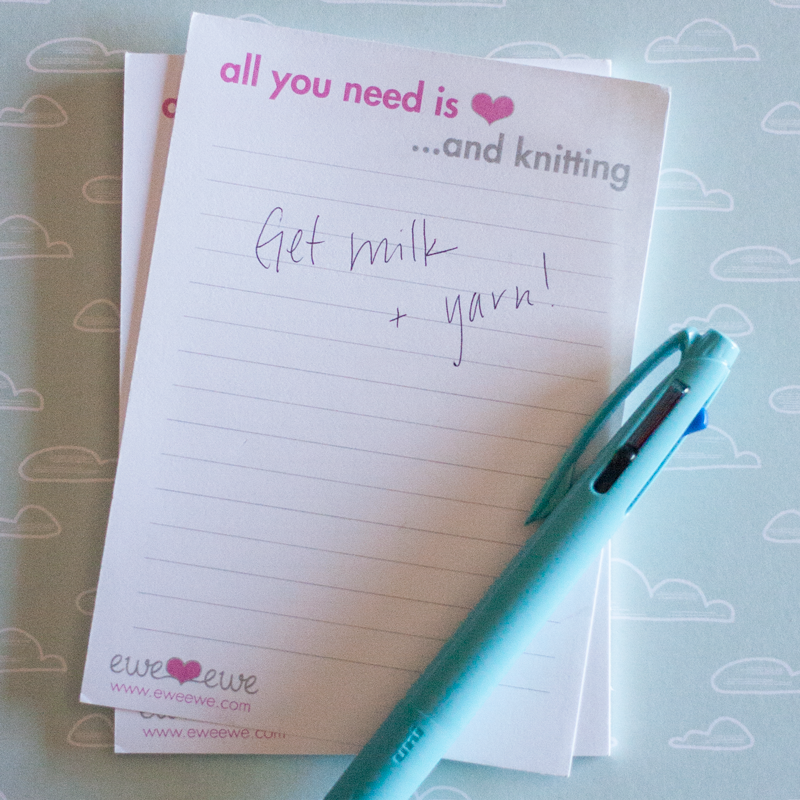 all you need is
...and knitting
Get milk
+ yarn!
ewe ewe
www.eweewe.com
www.eweewe.com